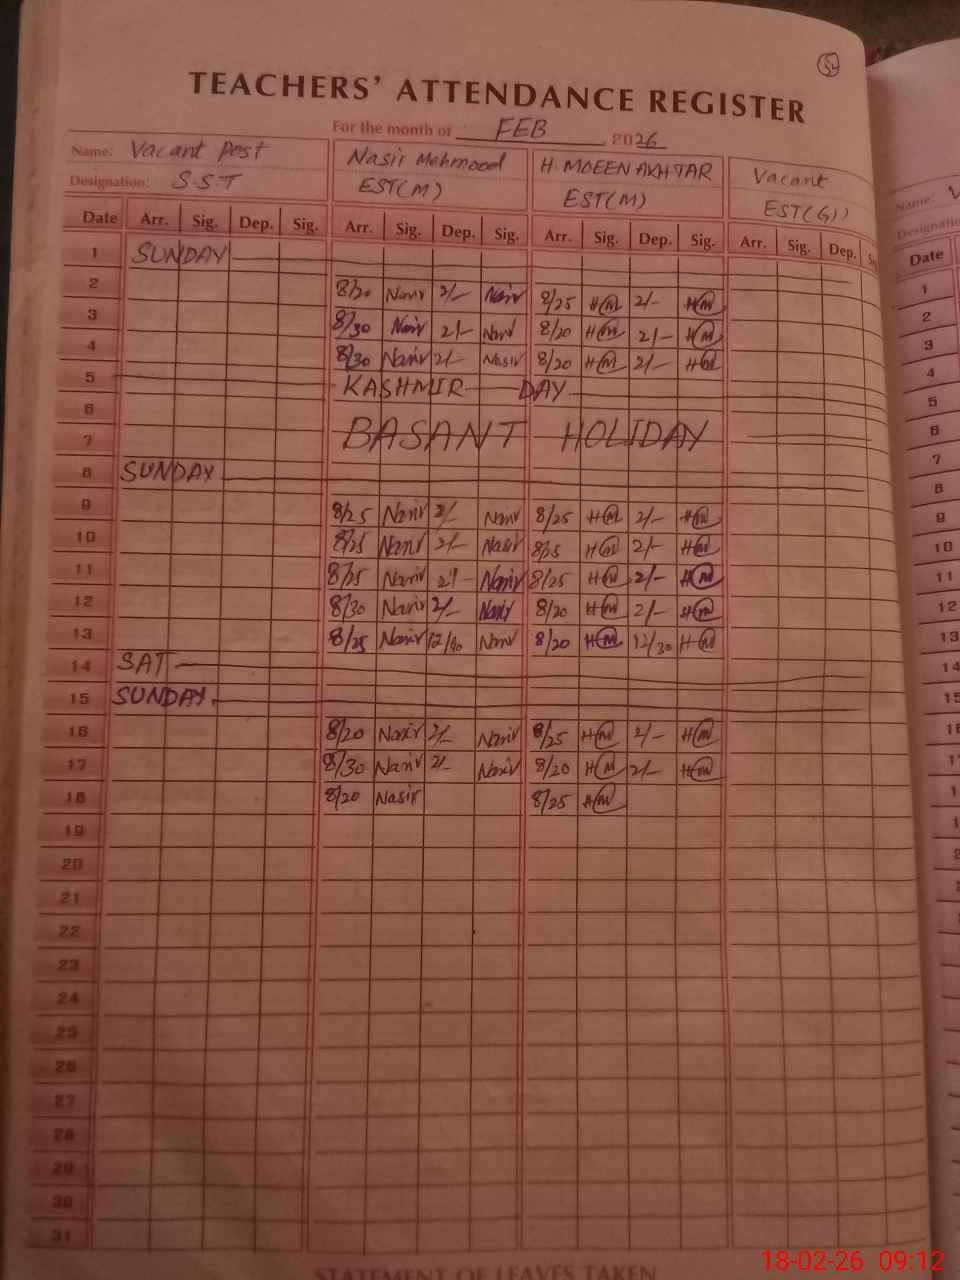 54
TEACHERS' ATTENDANCE REGISTER
For the month of FEB, 2026
Name: Vacant Post Nasir Mehmood H. MOEEN AKHTAR Vacant
Designation: S.S.T EST(M) EST(M) EST(G)
Date Arr. Sig. Dep. Sig. Arr. Sig. Dep. Sig. Arr. Sig. Dep. Sig. Arr. Sig. Dep.
1 SUNDAY
2 8/20 Nasir 2/- Nasir 8/25 HM 2/- HM
3 8/30 Nasir 2/- Nasir 8/20 HM 2/- HM
4 8/30 Nasir 2/- Nasir 8/20 HM 2/- HM
5 KASHMIR DAY
6
7 BASANT HOLIDAY
8 SUNDAY
9 8/25 Nasir 2/- Nasir 8/25 HM 2/- HM
10 8/25 Nasir 2/- Nasir 8/25 HM 2/- HM
11 8/25 Nasir 2/- Nasir 8/25 HM 2/- HM
12 8/30 Nasir 2/- Nasir 8/20 HM 2/- HM
13 8/25 Nasir Nasir 8/20 HM 12/30 HM
14 SAT
15 SUNDAY
16 8/20 Nasir 2/- Nasir 8/25 HM 2/- HM
17 8/30 Nasir 2/- Nasir 8/20 HM 2/- HM
18 8/20 Nasir 8/25 HM
19
20
21
22
23
24
25
26
27
28
29
30
31
STATEMENT OF LEAVES TAKEN
Name:
Designatio
Date
1
2
3
4
5
6
7
8
9
10
11
12
13
14
15
18-02-26 09:12